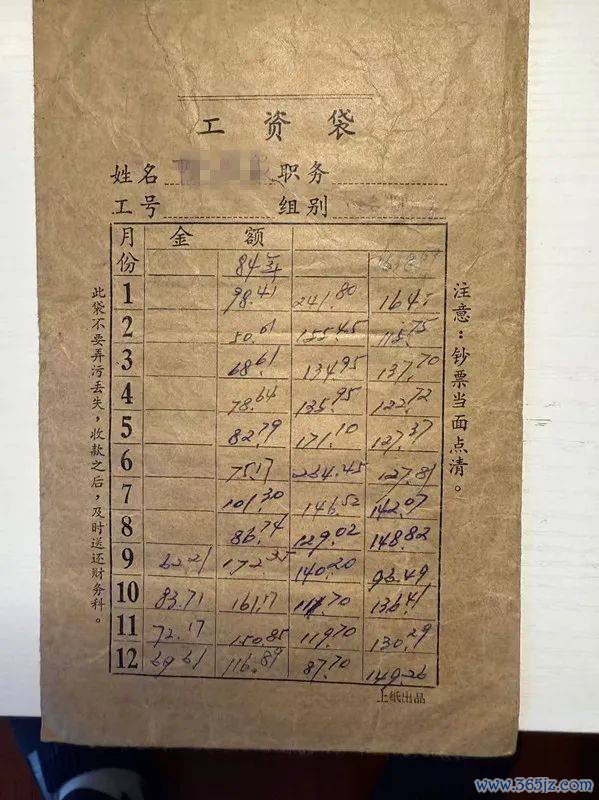 工资袋
姓名 职务
工号 组别
月份 金 额
84年
1 98.41 241.80 164.5
2 50.61 155.45 115.75
3 68.61 134.95 137.70
4 78.64 135.95 122.72
5 82.79 171.10 127.37
6 75.17 264.45 127.81
7 101.30 146.52 142.07
8 86.74 129.02 148.82
9 62.21 172.35 140.20 96.49
10 83.71 161.17 111.70 136.41
11 72.17 150.85 119.70 130.29
12 69.61 116.89 87.70 149.26
上纸出品
注意：钞票当面点清。
此袋不要弄污丢失，收款之后，及时送还财务科。
www.365jz.com